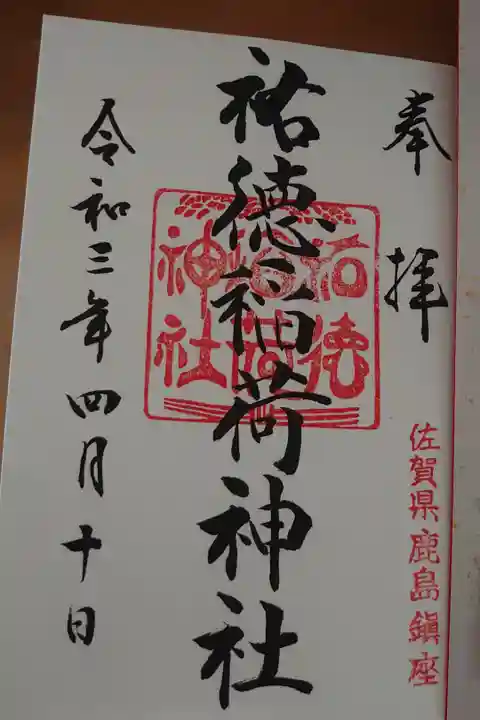 奉拝
佐賀県鹿島鎮座
祐徳稲荷神社
祐徳
稲荷
神社
令和三年四月十日